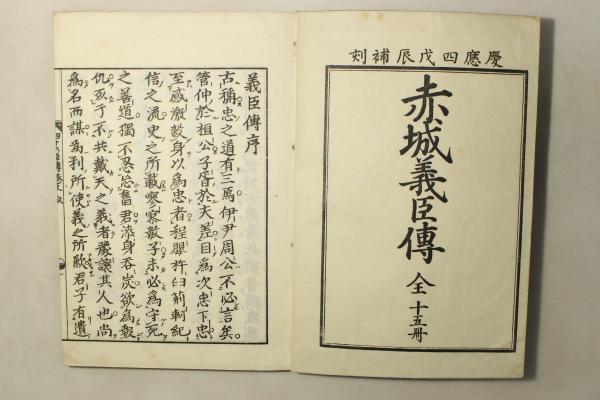 慶應四戊辰補刻
赤城義臣傳 全十五冊
義臣傳序
古稱忠之道有三焉伊尹周公不必言矣
管仲於祖公子胥於夫差目為次忠下忠
至感激殺身以為忠者程嬰杵臼荊軻紀
信之流史之所載寥寥數子未必為守死
之善道獨不忍忿奮君漆身吞炭欲為報
仇亥于不共戴天之義者豫讓其人也尚
為名而謀為利所使義之所歉君子有遺